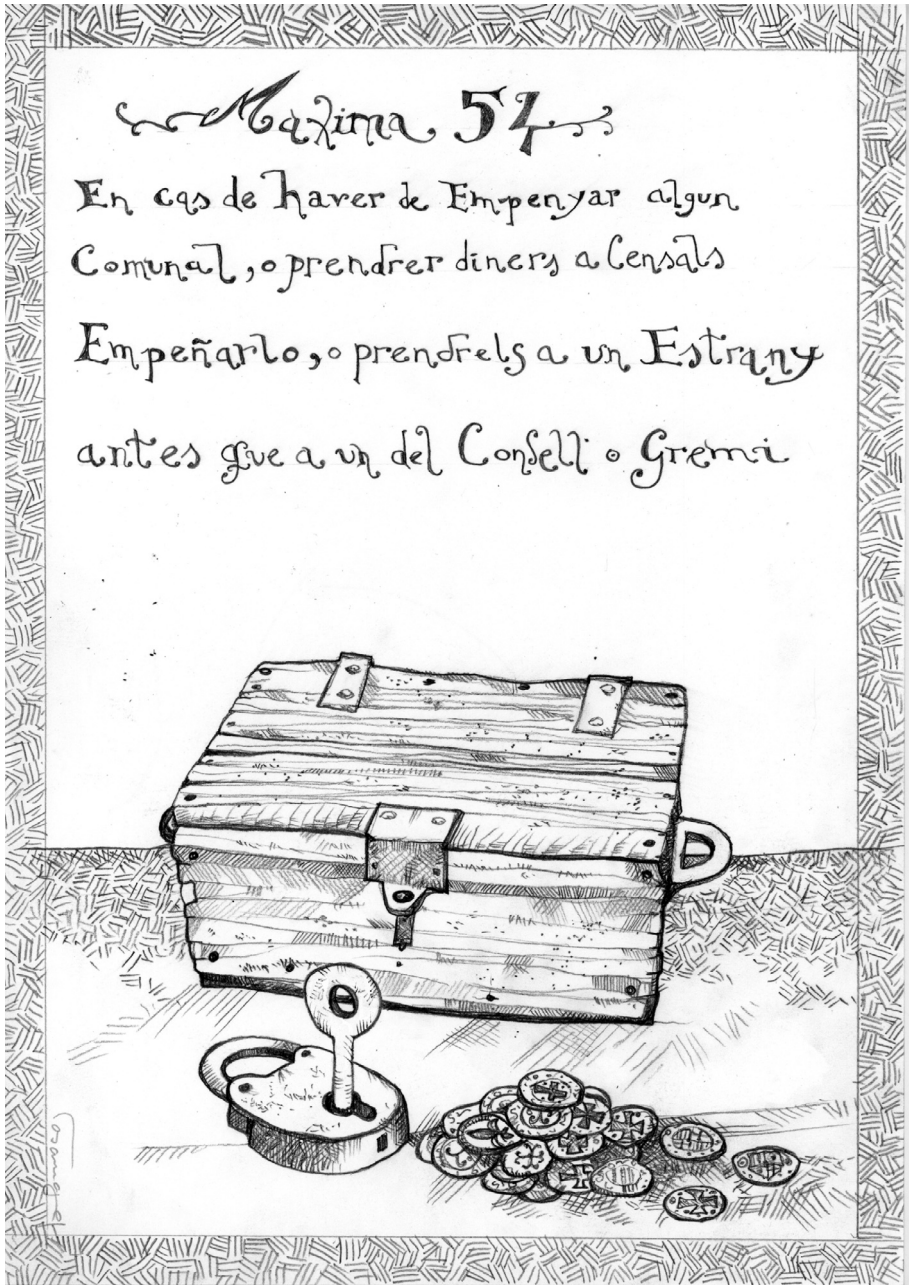 Maxima 54
En cas de haver de Empenyar algun
Comunal, o prendrer diners a Censals
Empeñarlo, o prendrels a un Estrany
antes que a un del Consell o Gremi